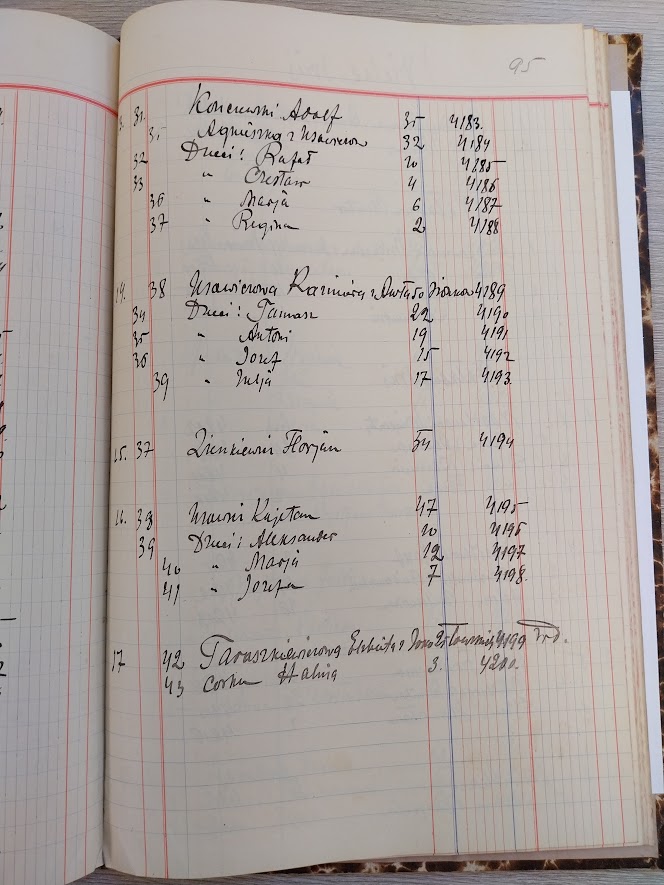 95
3. 31. Adolf 35 4183.
35 Agnieszka z 32 4184
32 Dzieci: Rafał 10 4185
33 " Czesław 4 4186
36 " Marja 6 4187
37 " Regina 2 4188
14. 38 4189
34 Dzieci: Tomasz 22 4190
35 " Antoni 19 4191
36 " Jozef 15 4192
39 " Julja 17 4193.
15. 37 Zienkiewicz Florjan 54 4194
16. 38 Kajetan 47 4195
39 Dzieci: Aleksander 10 4196
40 " Marja 12 4197
41 " Jozefa 7 4198.
17 42 Taraszkiewiczowa Elżbieta z 4199
43 corka Halina 3. 4200.